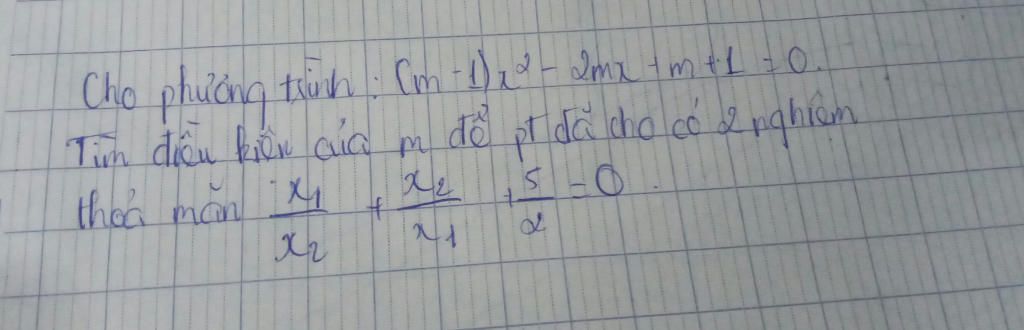 Cho phương trình: (m-1)x² - 2mx + m + 1 = 0.
Tìm điều kiện của m để pt đã cho có 2 nghiệm
thoả mãn x₁/x₂ + x₂/x₁ + 5/2 = 0.